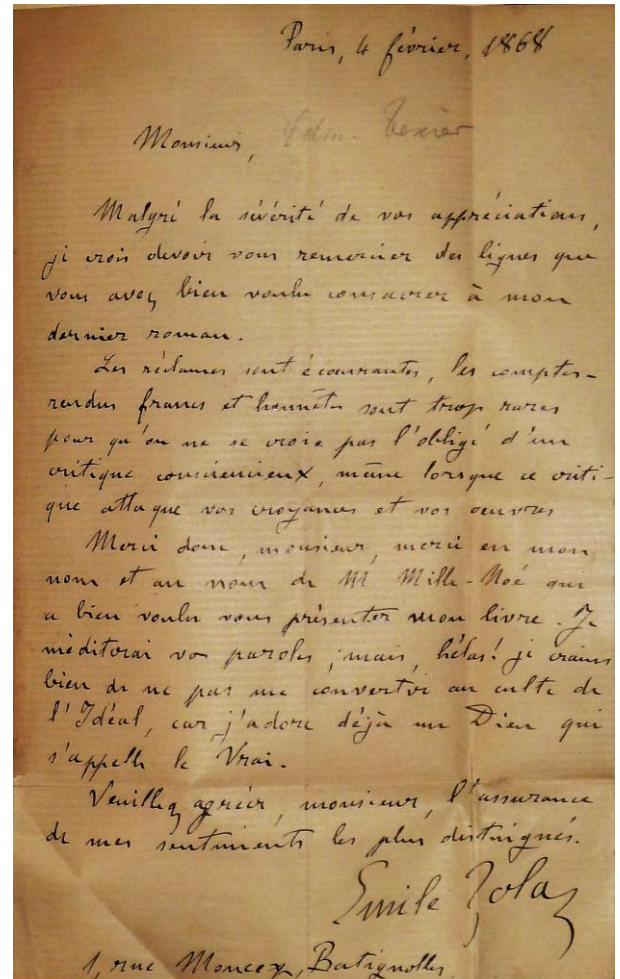 Paris, 4 février, 1868
Monsieur, Edm. Texier
Malgré la sévérité de vos appréciations,
je crois devoir vous remercier des lignes que
vous avez bien voulu consacrer à mon
dernier roman.
Les réclames sont écœurantes, les comptes-
rendus francs et honnêtes sont trop rares
pour qu'on ne se croie pas l'obligé d'un
critique consciencieux, même lorsque ce criti-
que attaque vos croyances et vos œuvres
Merci donc, monsieur, merci en mon
nom et au nom de M. Mille-Noé qui
a bien voulu vous présenter mon livre. Je
méditerai vos paroles ; mais, hélas! je crains
bien de ne pas me convertir au culte de
l'Idéal, car j'adore déjà un Dieu qui
s'appelle le Vrai.
Veuillez agréer, monsieur, l'assurance
de mes sentiments les plus distingués.
Emile Zola
1, rue Moncey, Batignolles